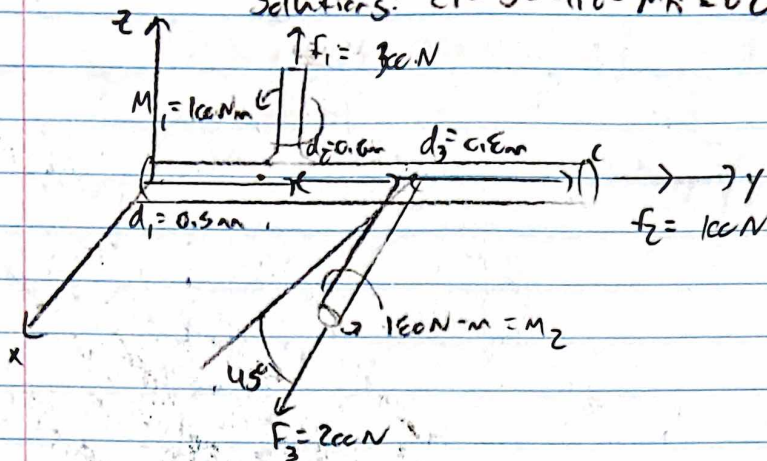 Solutions:
z
f₁ = 300 N
M₁ = 100 Nm
d₃ = 0.8m
C
y
d₁ = 0.5m
f₂ = 100 N
180 N-m = M₂
x
45°
F₃ = 200 N